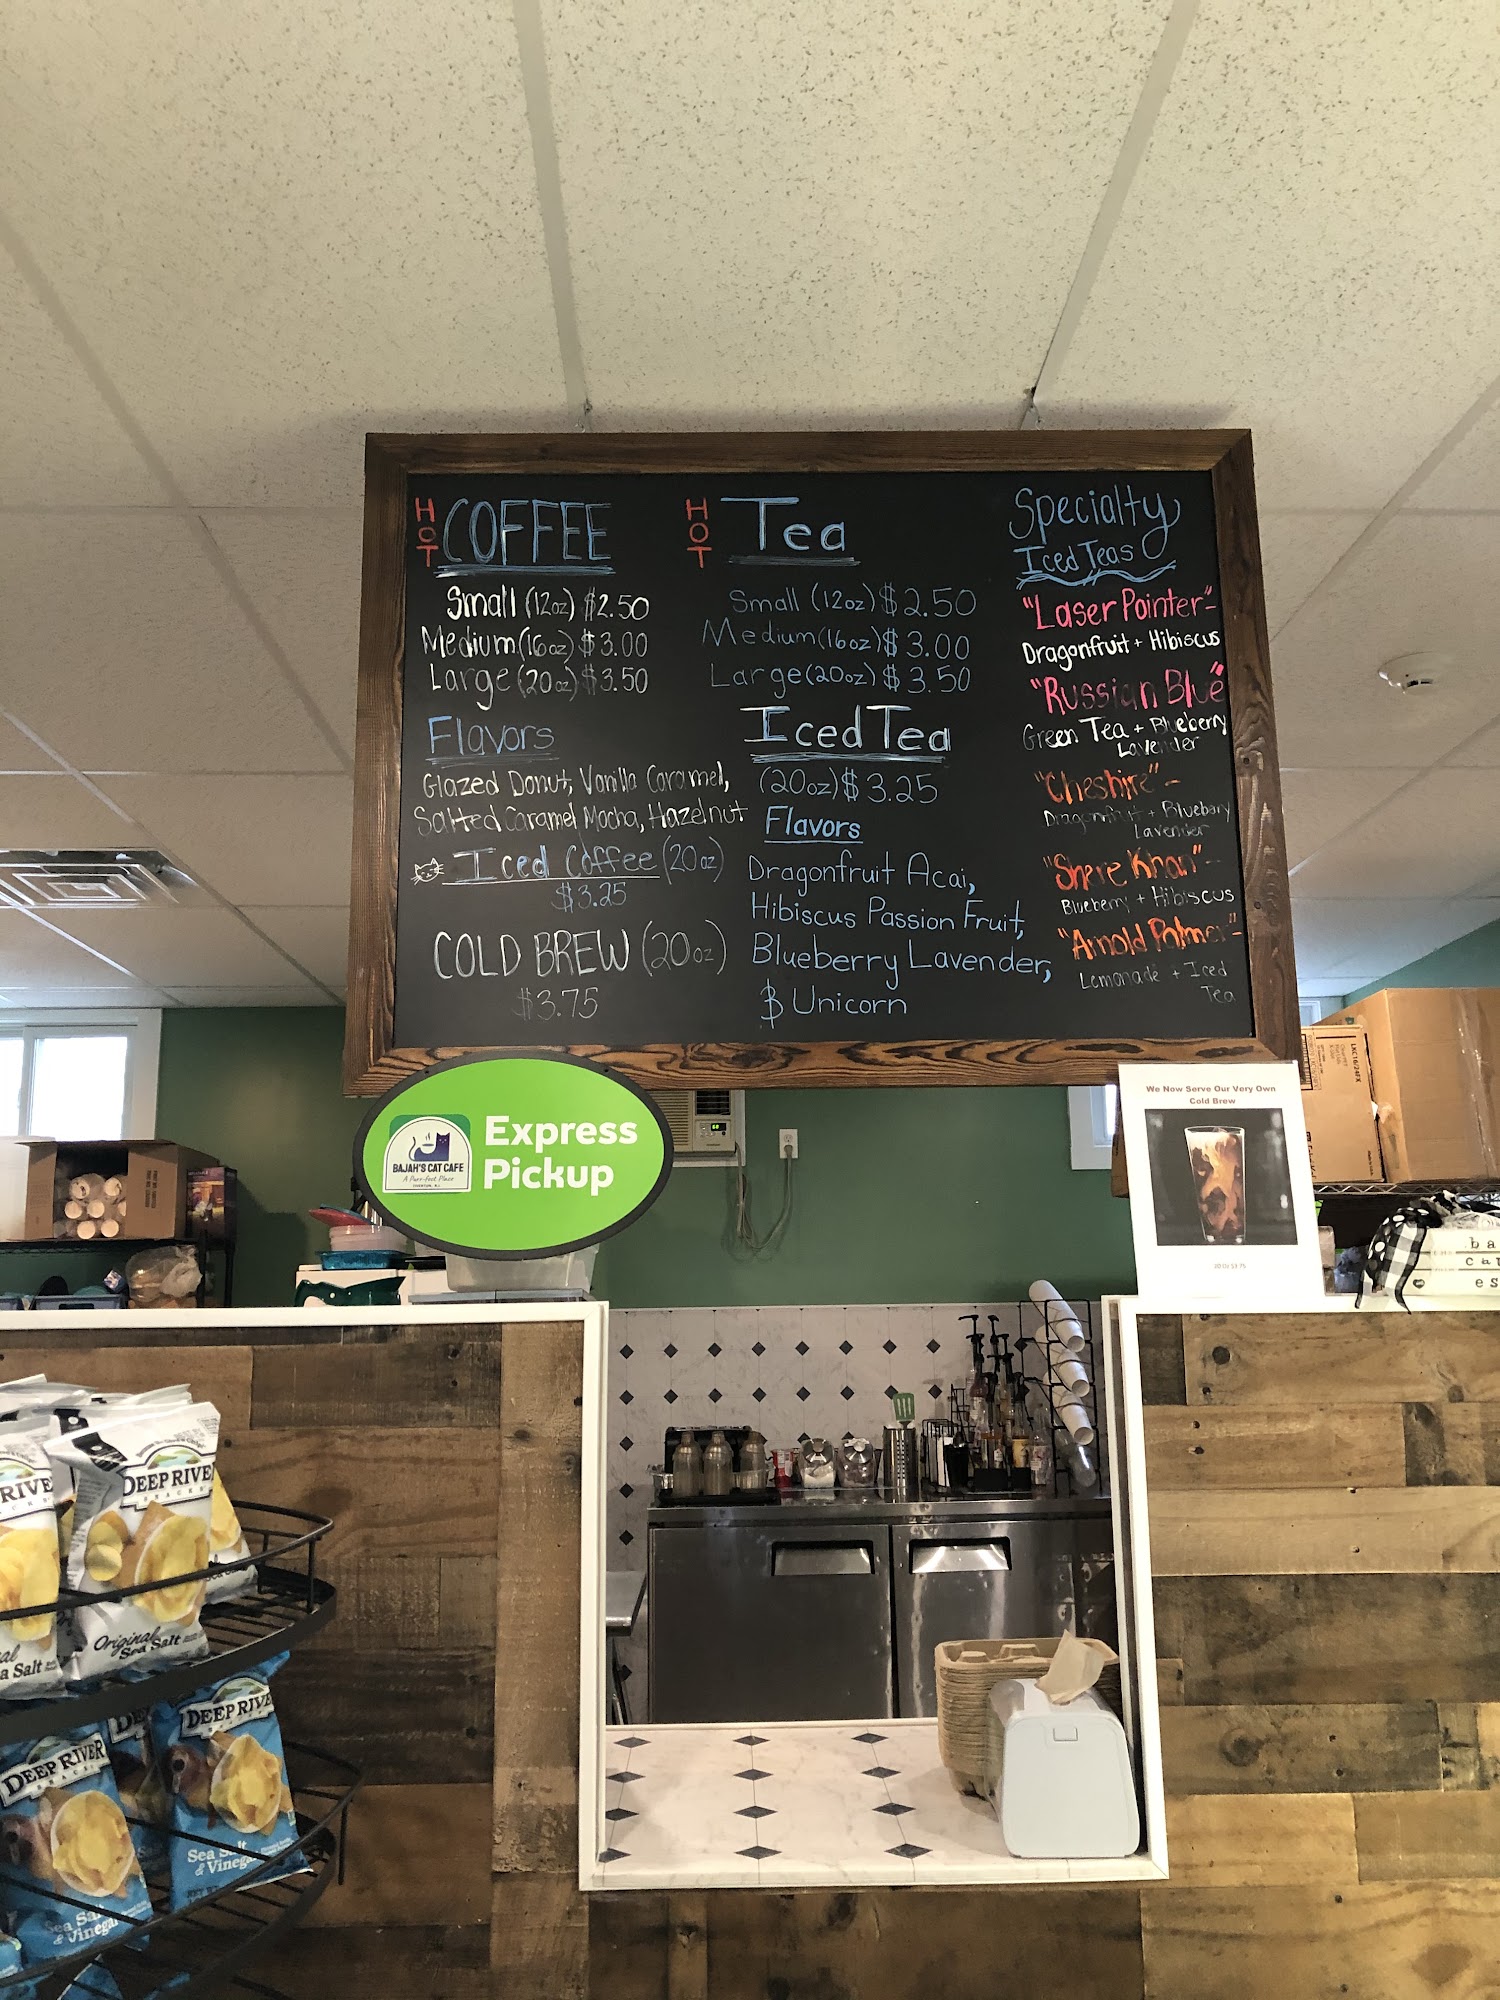 HOT COFFEE
Small (12oz) $2.50
Medium (16oz) $3.00
Large (20oz) $3.50
Flavors
Glazed Donut, Vanilla Caramel,
Salted Caramel Mocha, Hazelnut
Iced Coffee (20oz)
$3.25
COLD BREW (20oz)
$3.75
HOT Tea
Small (12oz) $2.50
Medium (16oz) $3.00
Large (20oz) $3.50
Iced Tea
(20oz) $3.25
Flavors
Dragonfruit Acai,
Hibiscus Passion Fruit,
Blueberry Lavender,
& Unicorn
Specialty
Iced Teas
"Laser Pointer"-
Dragonfruit + Hibiscus
"Russian Blue"
Green Tea + Blueberry
Lavender
"Cheshire"-
Dragonfruit + Blueberry
Lavender
"Shere Khan"-
Blueberry + Hibiscus
"Arnold Palmer"-
Lemonade + Iced
Tea
BAJAH'S CAT CAFE
A Purr-fect Place
Express
Pickup
We Now Serve Our Very Own
Cold Brew
20 Oz $3.75
LKC16/24FX
ba
cat
es
DEEP RIVER
SNACKS
Original
Sea Salt
RIVE
a Salt
DEEP RIVER
SNACKS
Sea Salt
& Vinegar
DEEP RIVER
Sea Salt
& Vinegar